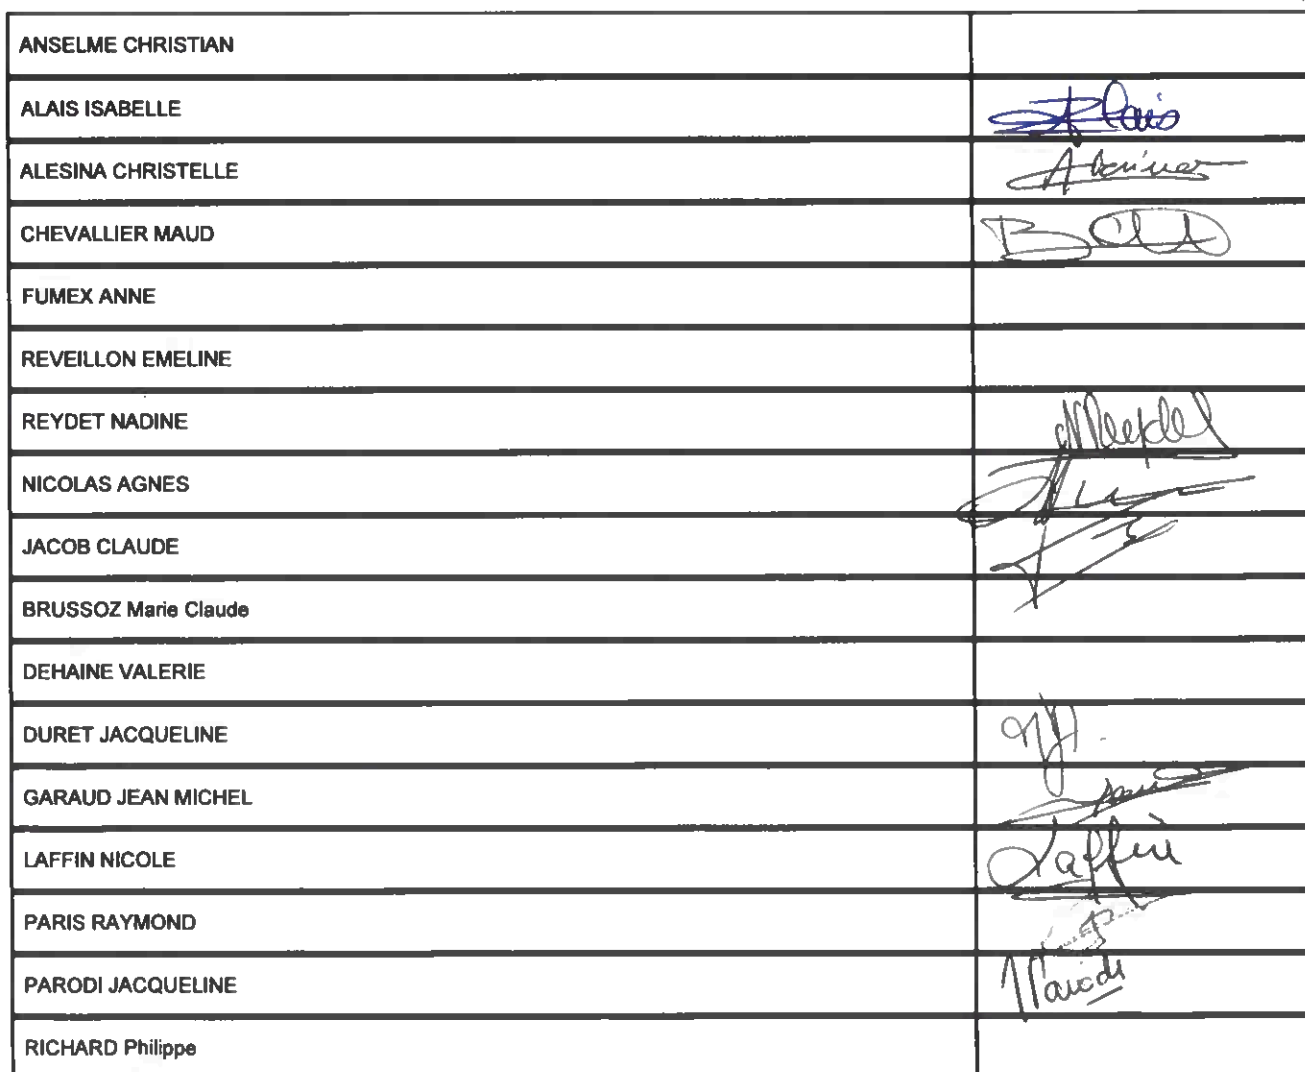 ANSELME CHRISTIAN
ALAIS ISABELLE
Alais
ALESINA CHRISTELLE
Alesina
CHEVALLIER MAUD
FUMEX ANNE
REVEILLON EMELINE
REYDET NADINE
NReydet
NICOLAS AGNES
JACOB CLAUDE
BRUSSOZ Marie Claude
DEHAINE VALERIE
DURET JACQUELINE
GARAUD JEAN MICHEL
LAFFIN NICOLE
Laffin
PARIS RAYMOND
PARODI JACQUELINE
Parodi
RICHARD Philippe